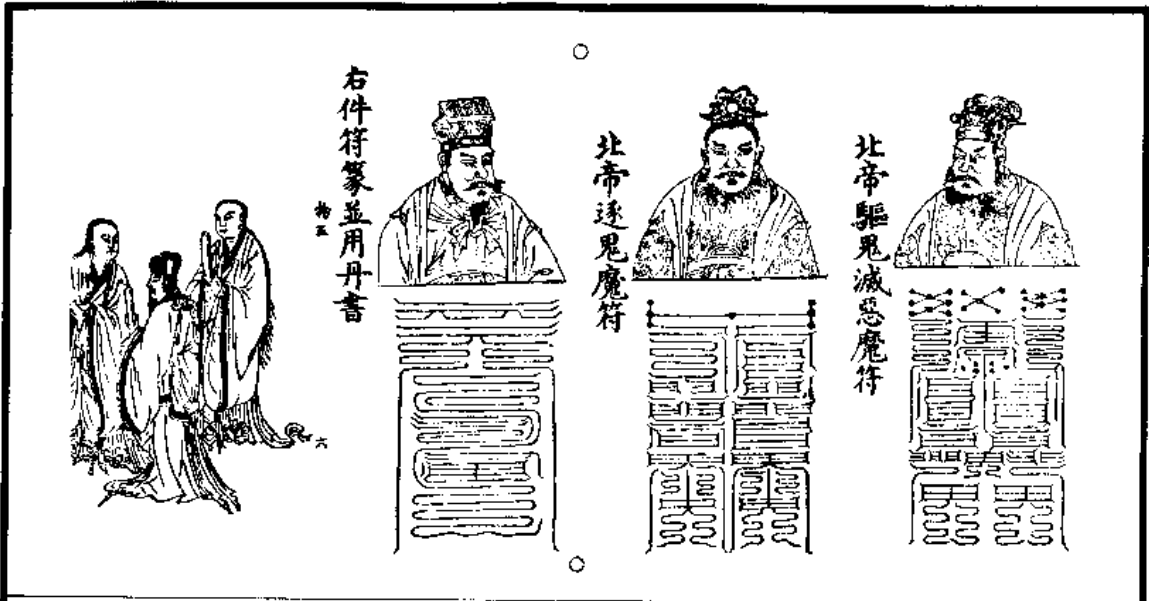 北帝驅鬼滅惡魔符
北帝逐鬼魔符
右件符篆並用丹書
六